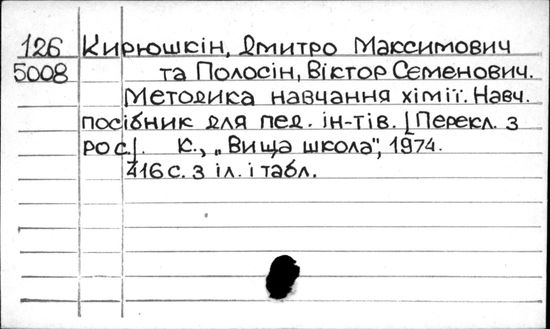 126 Кирюшкін, Дмитро Максимович
5008 та Полосін, Віктор Семенович.
Методика навчання хімії. Навч.
посібник для пед. ін-тів. [Перекл. з
рос]. К., „Вища школа", 1974.
416 с. з іл. і табл.